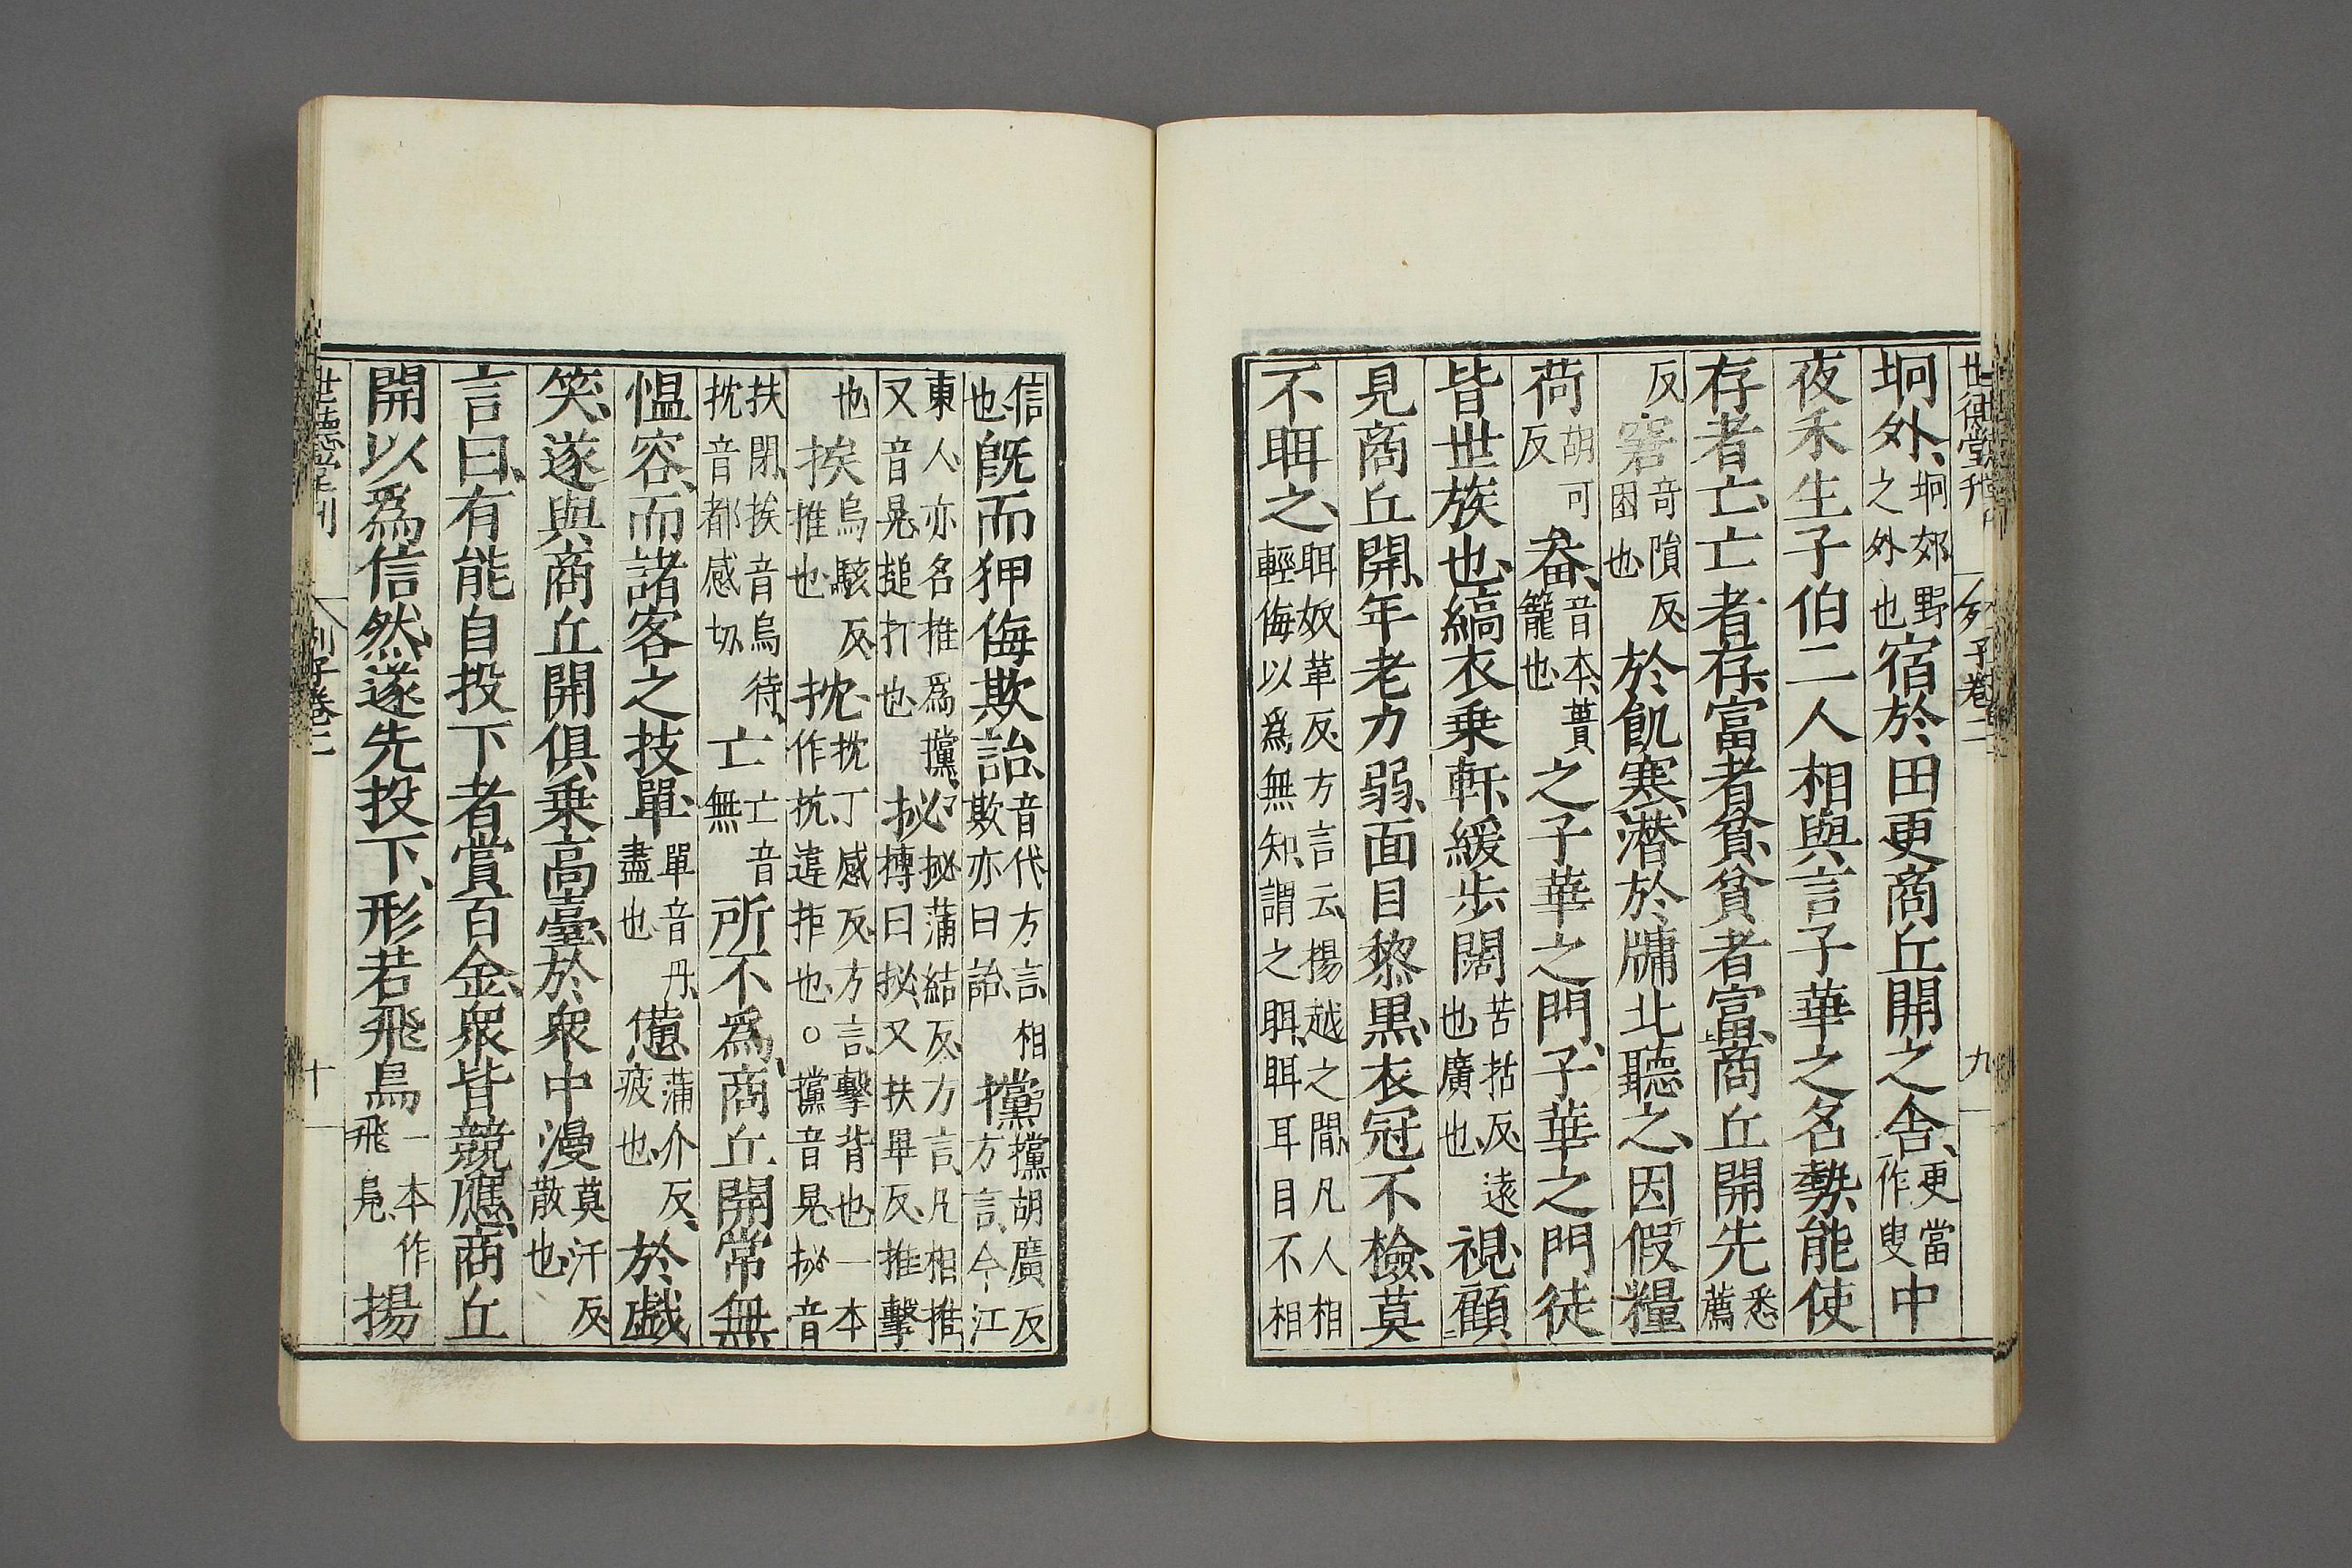 世德堂刊 列子卷二 九
坰外坰郊野之外也宿於田更商丘開之舍更當作叟中
夜禾生子伯二人相與言子華之名勢能使
存者亡亡者存富者貧貧者富商丘開先悉薦
反窘奇隕反困也於飢寒潛於牖北聽之因假糧
荷胡可反畚音本蕢籠也之子華之門子華之門徒
皆世族也縞衣乗軒緩步闊苦括反遠也廣也視顧
見商丘開年老力弱面目黎黑衣冠不檢莫
不眲之眲奴革反方言云揚越之間凡人相輕侮以爲無知謂之眲眲耳目不相
信也旣而狎侮欺詒音代方言相欺亦曰詒攩攩胡廣反方言今江
東人亦名推爲攩又音晃搥打也㧙㧙蒲結反方言凡相推搏曰㧙又扶畢反推擊
也挨烏駭反推也抌抌丁感反方言擊背也一本作抗違拒也○攩音晃㧙音
扶閉挨音烏待抌音都感切亡亡音無所不爲商丘開常無
慍容而諸客之技單單音丹盡也憊蒲介反疲也於戲
笑遂與商丘開俱乗高臺於衆中漫莫汗反散也
言曰有能自投下者賞百金衆皆競應商丘
開以爲信然遂先投下形若飛鳥一本作飛鳧揚
世德堂刊 列子卷二 十